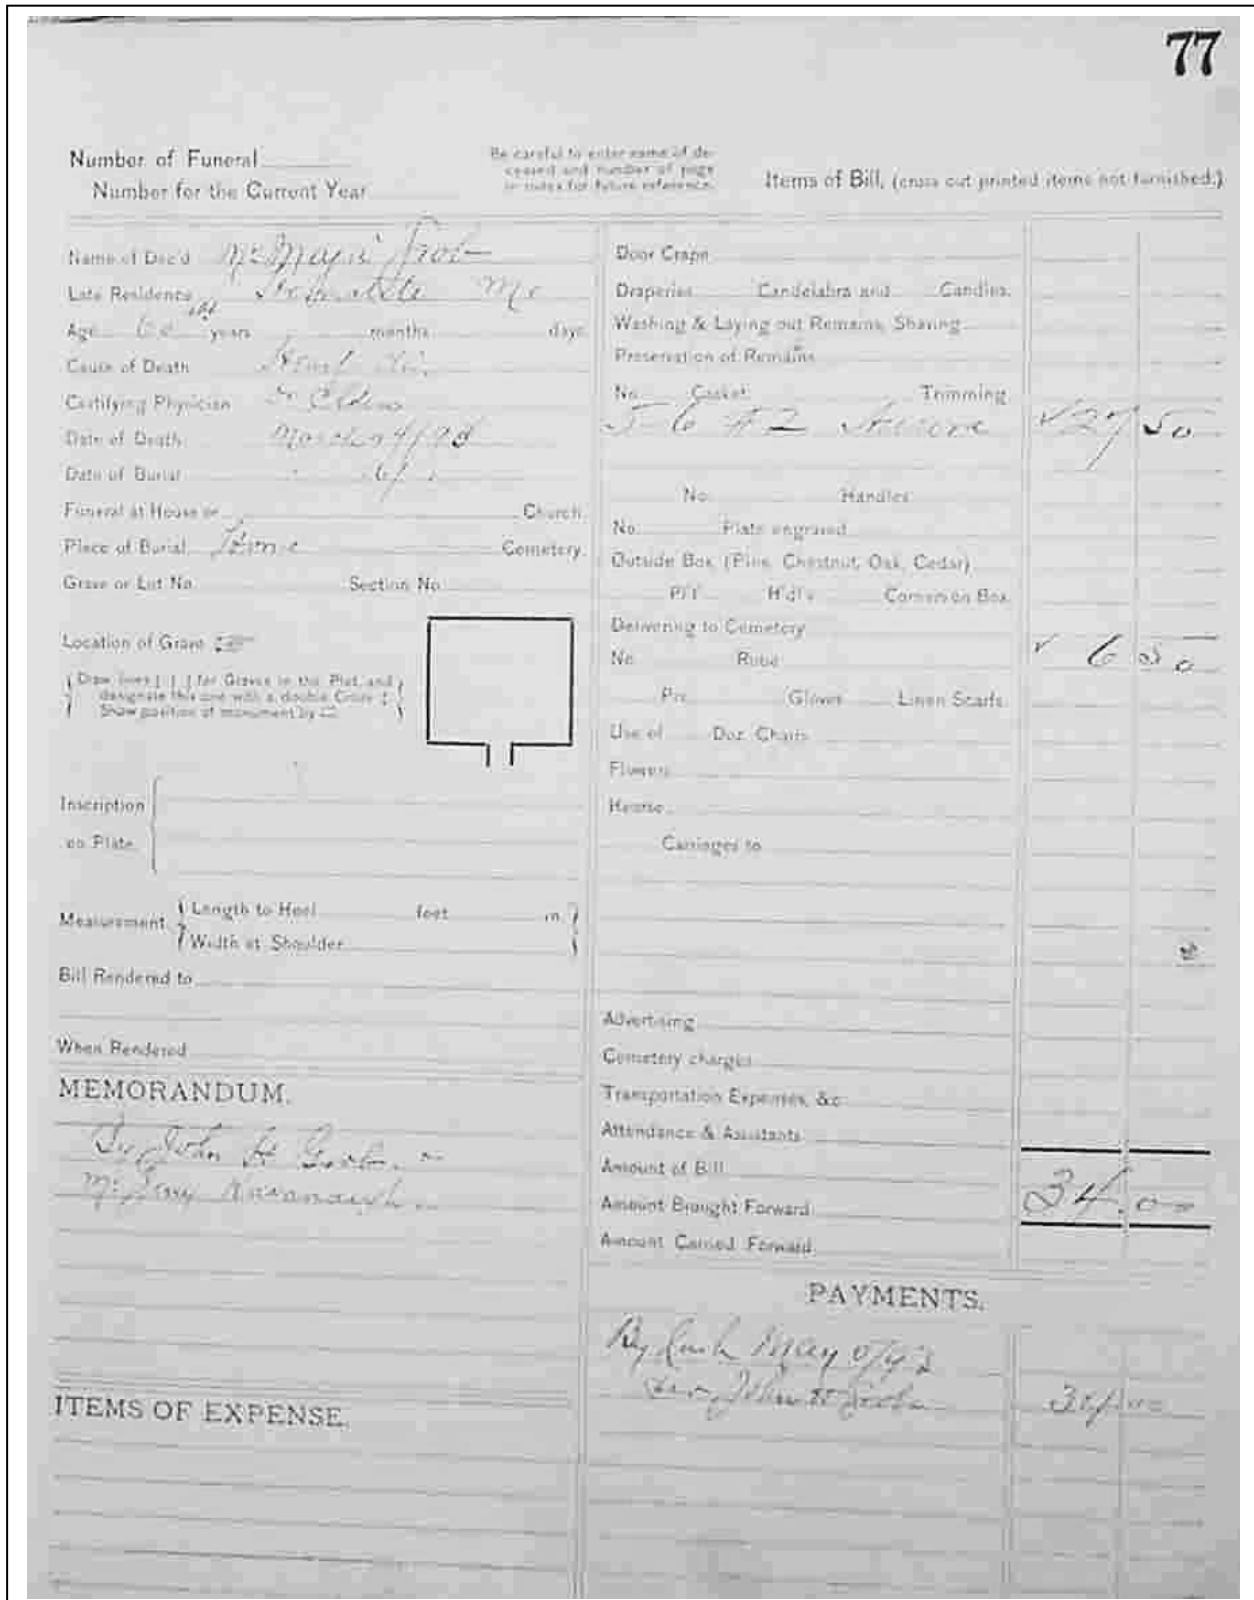 77
Number of Funeral
Number for the Current Year
Be careful to enter name of de-
ceased and number of page
in index for future reference.
Items of Bill, (cross out printed items not furnished.)
Name of Dec'd
Late Residence Me
Age years months days
Cause of Death
Certifying Physician
Date of Death March 4/98
Date of Burial " 6/ "
Funeral at House or Church
Place of Burial Cemetery.
Grave or Lot No. Section No.
Location of Grave
Draw lines for Graves in the Plat, and
designate this one with a double Cross
Show position of monument by
Inscription
on Plate
Measurement Length to Heel feet in.
Width at Shoulder
Bill Rendered to
When Rendered
MEMORANDUM.
John H
Kavanaugh
ITEMS OF EXPENSE.
Door Crape
Draperies Candelabra and Candles.
Washing & Laying out Remains, Shaving
Preservation of Remains
No. Casket Trimming
5-6 #2 27 50
No. Handles
No. Plate engraved
Outside Box (Pine, Chestnut, Oak, Cedar)
Pl't H'dl's Corners on Box
Delivering to Cemetery
No. Robe 6 50
Prs Gloves Linen Scarfs.
Use of Doz. Chairs
Flowers
Hearse
Carriages to
Advertising
Cemetery charges
Transportation Expenses, &c
Attendance & Assistants
Amount of Bill
Amount Brought Forward 34.00
Amount Carried Forward
PAYMENTS.
By Cash May
John H 34.00